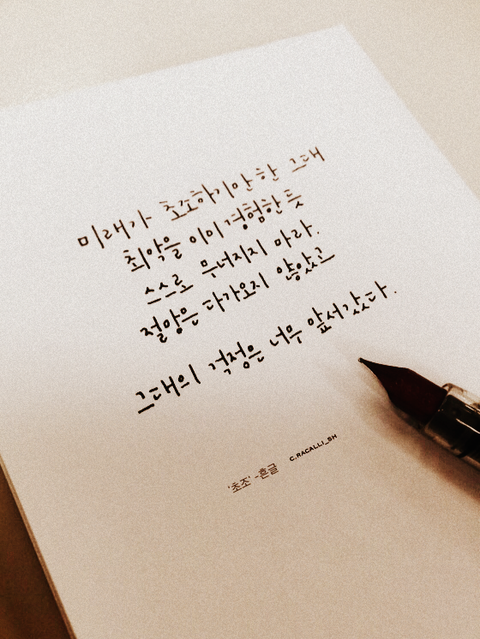 미래가 초조하기만 한 그대
최악을 이미 경험한 듯
스스로 무너지지 마라.
절망은 다가오지 않았고
그대의 걱정은 너무 앞서갔다.
'초조' -흔글 C.RACALLI_SH